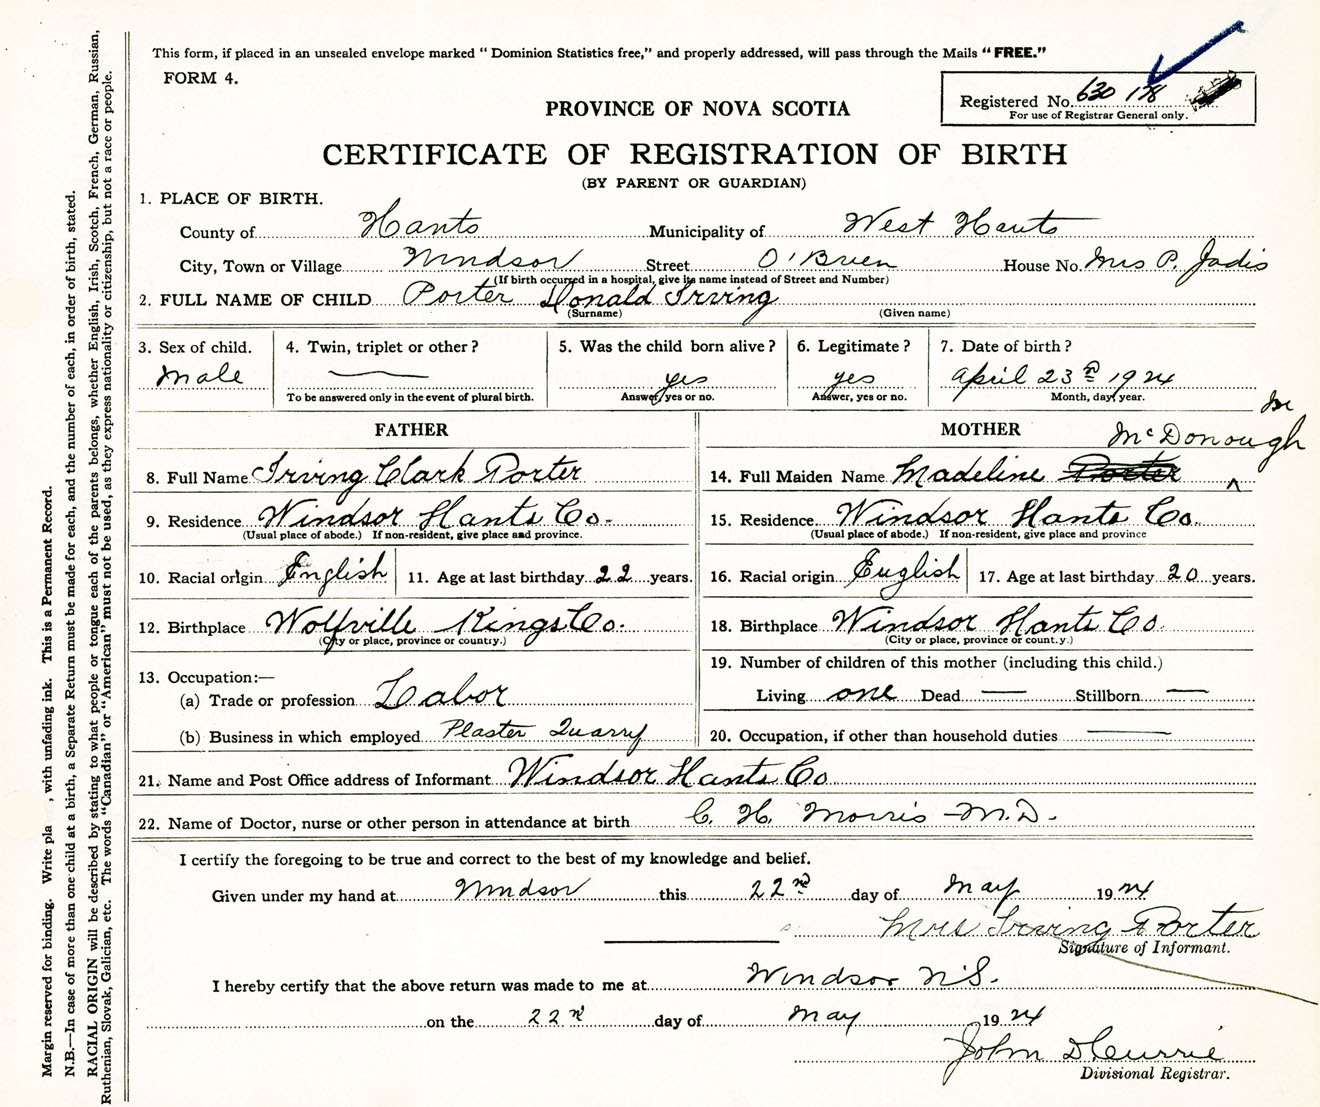 This form, if placed in an unsealed envelope marked “ Dominion Statistics free,” and properly addressed, will pass through the Mails “ FREE.”
FORM 4.
Registered No. 630 178
For use of Registrar General only.
PROVINCE OF NOVA SCOTIA
CERTIFICATE OF REGISTRATION OF BIRTH
(BY PARENT OR GUARDIAN)
1. PLACE OF BIRTH.
County of Hants Municipality of West Hants
City, Town or Village Windsor Street O'Brien House No. Mrs P. Jadis
(If birth occurred in a hospital, give its name instead of Street and Number)
2. FULL NAME OF CHILD Porter Donald Irving
(Surname) (Given name)
3. Sex of child. 4. Twin, triplet or other? 5. Was the child born alive? 6. Legitimate? 7. Date of birth?
Male — yes yes April 23rd 1924
To be answered only in the event of plural birth. Answer, yes or no. Answer, yes or no. Month, day, year.
FATHER MOTHER
McDonough
8. Full Name Irving Clark Porter 14. Full Maiden Name Madeline Porter
9. Residence Windsor Hants Co. 15. Residence. Windsor Hants Co.
(Usual place of abode.) If non-resident, give place and province. (Usual place of abode.) If non-resident, give place and province
10. Racial origin English 11. Age at last birthday 22 years. 16. Racial origin English 17. Age at last birthday 20 years.
12. Birthplace Wolfville Kings Co. 18. Birthplace Windsor Hants Co.
(City or place, province or country.) (City or place, province or count.y.)
13. Occupation:— 19. Number of children of this mother (including this child.)
(a) Trade or profession Labor Living one Dead — Stillborn —
(b) Business in which employed Plaster Quarry 20. Occupation, if other than household duties —
21. Name and Post Office address of Informant Windsor Hants Co
22. Name of Doctor, nurse or other person in attendance at birth C. H. Morris - M.D.
I certify the foregoing to be true and correct to the best of my knowledge and belief.
Given under my hand at Windsor this 22nd day of May 1924
Mrs Irving Porter
Signature of Informant.
I hereby certify that the above return was made to me at Windsor N.S.
on the 22nd day of May 1924
John D Currie
Divisional Registrar.
Margin reserved for binding. Write pla , with unfading ink. This is a Permanent Record.
N.B.—In case of more than one child at a birth, a Separate Return must be made for each, and the number of each, in order of birth, stated.
RACIAL ORIGIN will be described by stating to what people or tongue each of the parents belongs, whether English, Irish, Scotch, French, German, Russian,
Ruthenian, Slovak, Galician, etc. The words “Canadian” or “American” must not be used, as they express nationality or citizenship, but not a race or people.